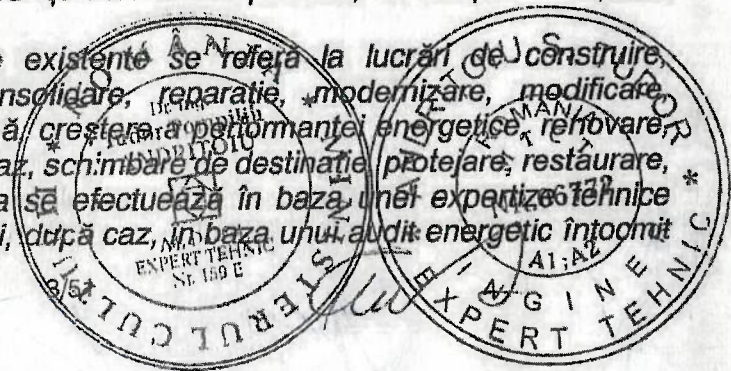 existente se referă la lucrări de construire,
nsolidare, reparație, modernizare, modificare,
ă, creșterea performanței energetice, renovare,
az, schimbare de destinație, protejare, restaurare,
a se efectuează în baza unei expertize tehnice
i, după caz, in baza unui audit energetic întocmit
ROMÂNIA
EXPERT TEHNIC
Nr. 159 E
ROMÂNIA
A1;A2
INGINER
EXPERT TEHNIC